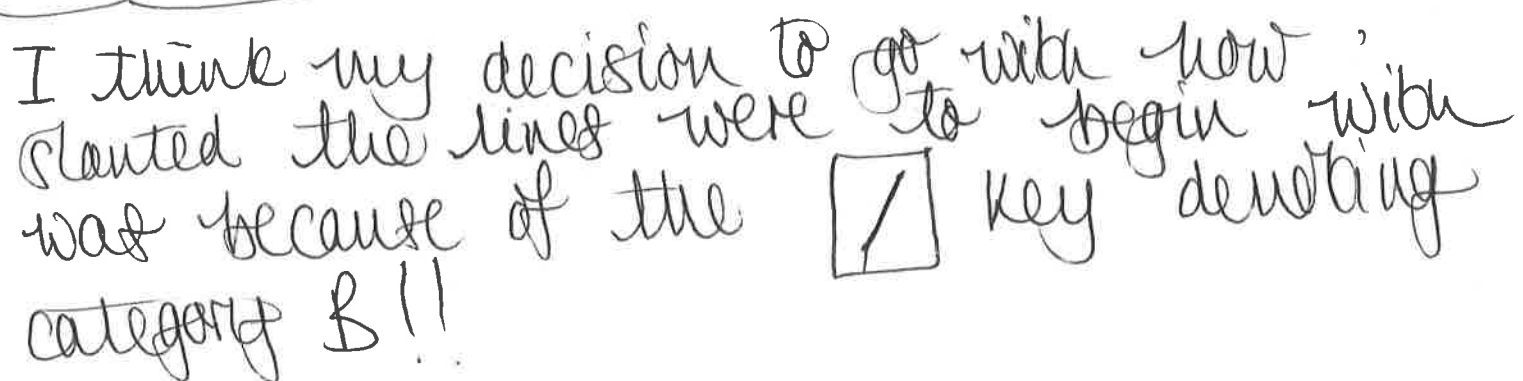 I think my decision to go with how
slanted the lines were to begin with
was because of the [/] key denoting
category B!!